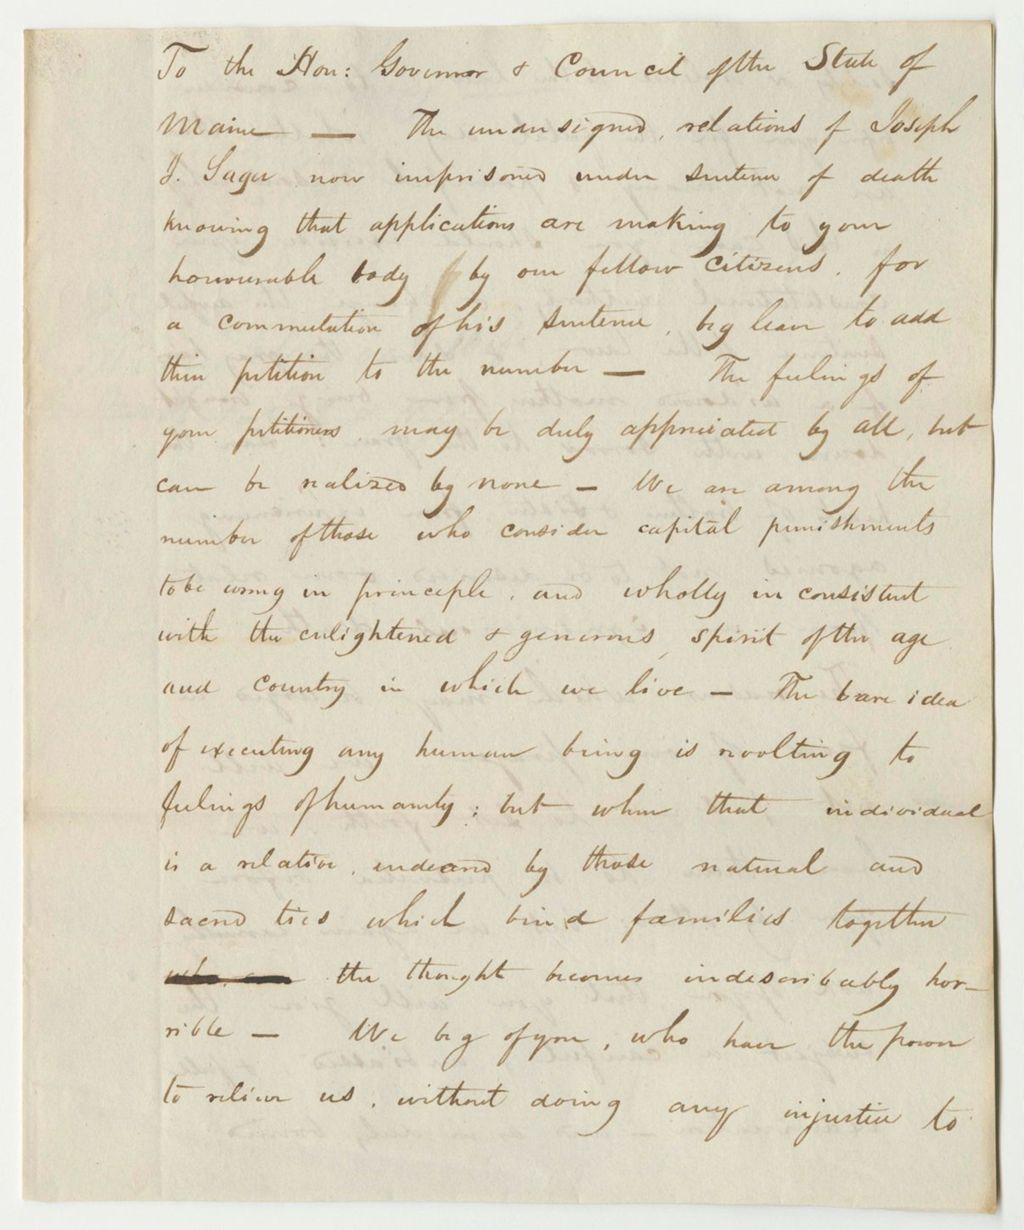 To the Hon: Governor & Council of the State of
Maine — The undersigned, relations of Joseph
J. Sager now imprisoned under sentence of death
knowing that applications are making to your
honourable body by our fellow citizens, for
a commutation of his sentence, beg leave to add
their petition to the number — The feelings of
your petitioners may be duly appreciated by all, but
can be realized by none — We are among the
number of those who consider capital punishments
to be wrong in principle, and wholly inconsistent
with the enlightened & generous, spirit of the age
and country in which we live — The bare idea
of executing any human being is revolting to
feelings of humanity; but when that individual
is a relative, endeared by those natural and
sacred ties which bind families together
the thought becomes indescribably hor-
rible — We beg of you, who have the power
to relieve us, without doing any injustice to